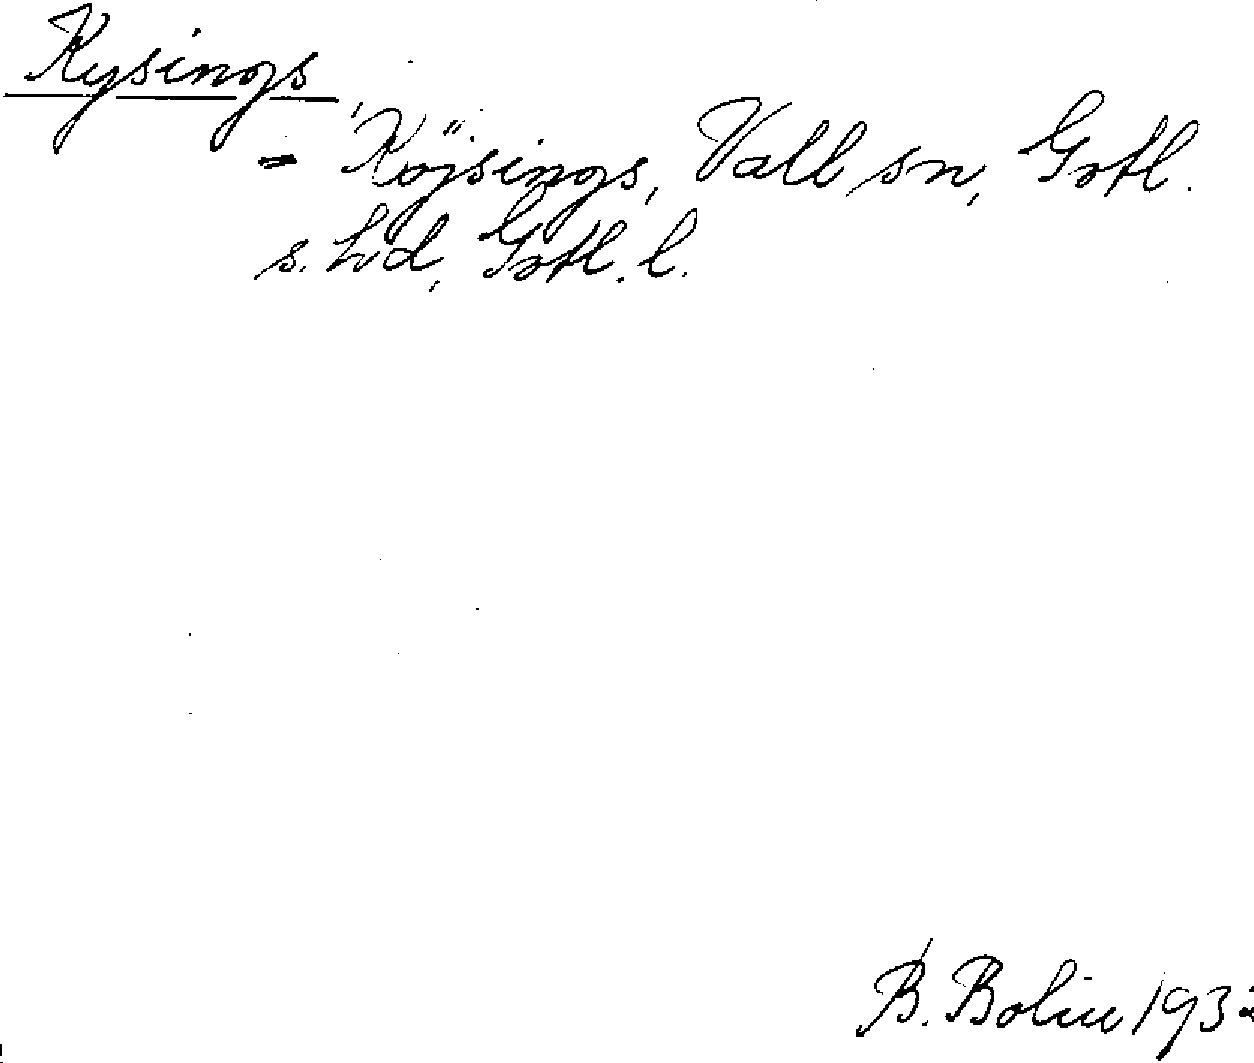 Kysings
= Köjsings, Vall sn, Gotl.
s. hd, Gotl. l.
B. Bolin 1932